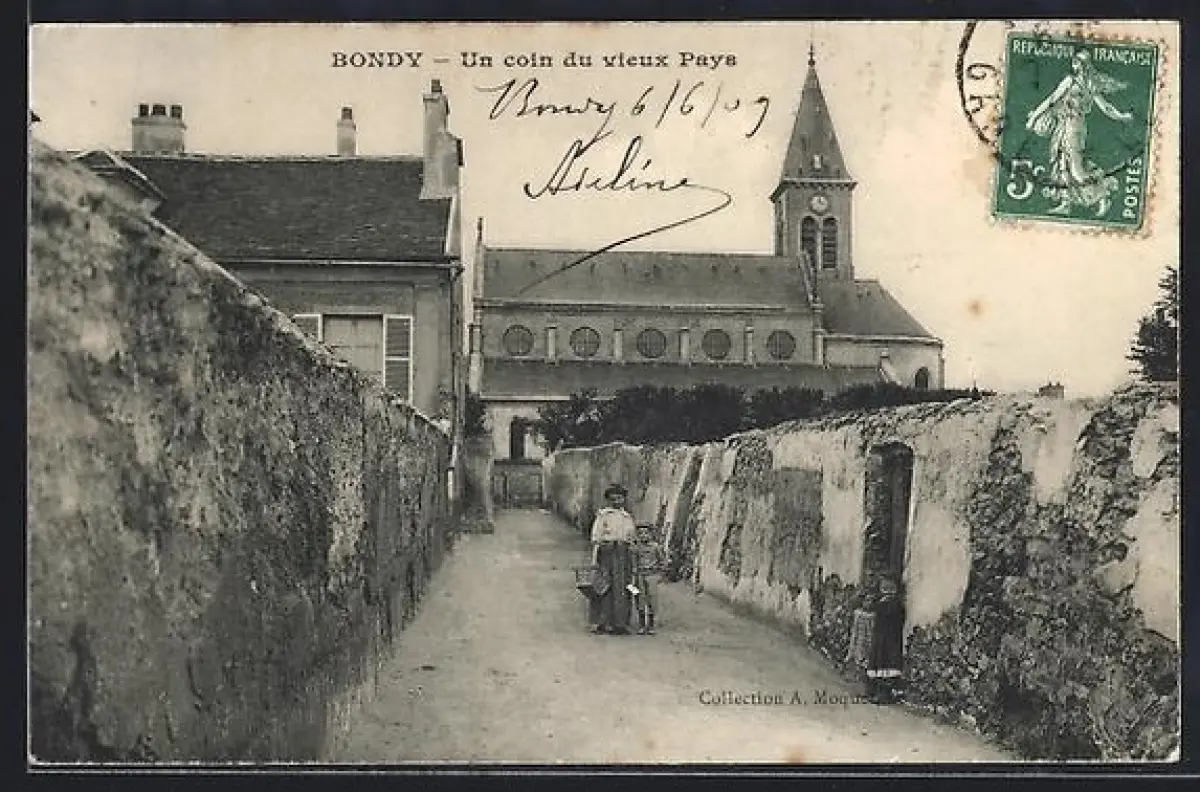 BONDY – Un coin du vieux Pays
Bondy 6/6/09
Adeline
REPUBLIQUE FRANÇAISE
5c POSTES
Collection A.